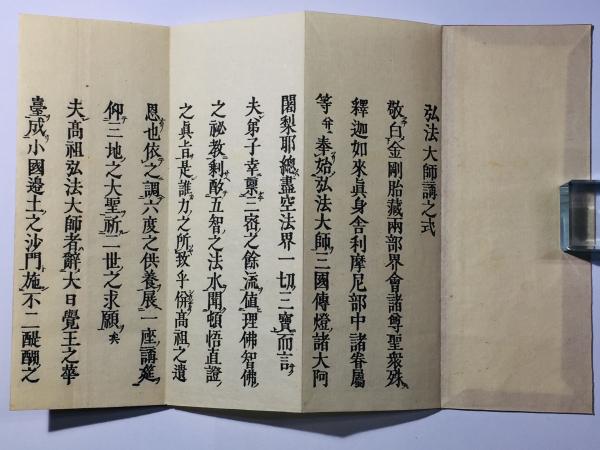 弘法大師講之式
敬白金剛胎藏兩部界會諸尊聖衆殊
釋迦如來眞身舍利摩尼部中諸眷屬
等奉始弘法大師三國傳燈諸大阿
闍梨耶總盡空法界一切三寶而言
夫弟子幸稟三密之餘流値理佛智佛
之祕教剩酌五智之法水聞頓悟直證
之眞旨是誰力之所致乎併髙祖之遺
恩也依之調六度之供養展一座講筵
仰三地之大聖祈二世之求願矣
夫髙祖弘法大師者辭大日覺王之華
臺成小國邊土之沙門施不二醍醐之